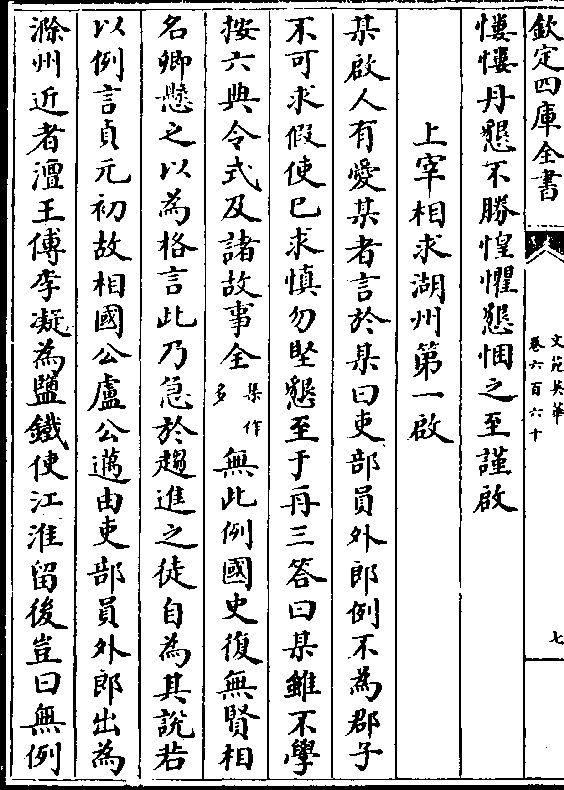 欽定四庫全書
文苑英華
卷六百六十
七
慺慺丹懇不勝惶懼懇悃之至謹啟
上宰相求湖州第一啟
某啟人有愛某者言於某曰吏部員外郎例不為郡子
不可求假使已求慎勿堅懇至于再三答曰某雖不學
按六典令式及諸故事全集作多無此例國史復無賢相
名卿懸之以為格言此乃急於趨進之徒自為其說若
以例言貞元初故相國公盧公邁由吏部員外郎出為
滁州近者澶王傅李凝為鹽鐵使江淮留後豈曰無例